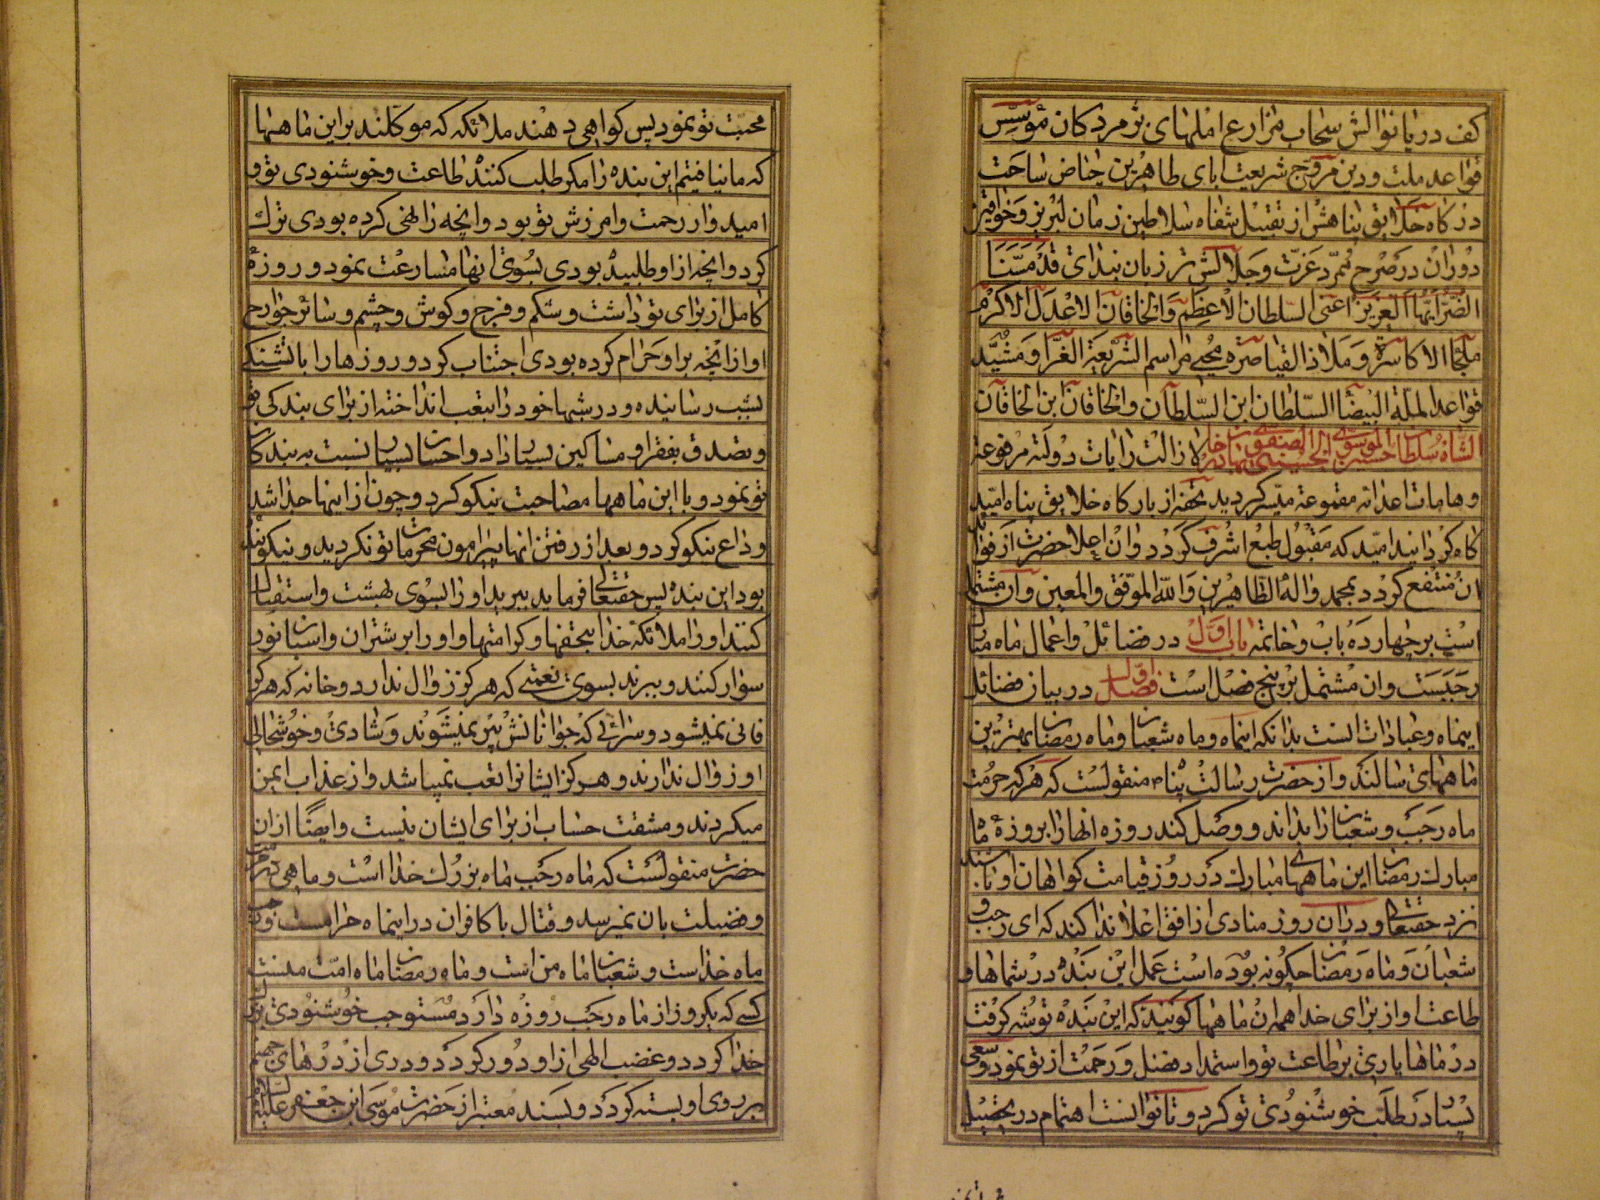 کف دریا نوالش سحاب مزارع املهای پژمردکان مؤسس
قواعد ملت و دین مروج شریعت ابای طاهرین چناص ساحت
درکاه خلایق پناهش از تقبیل شفاه سلاطین زمان لبریز و خواقین
دوران در صرح ممرد عزت و جلالش تر زبان بندای قد مسنا
الضر ایها العزیز اعنی السلطان الاعظم والخاقان الاعدل الاکرم
ملجا الاکاسرة و ملاذ القیاصره محیی مراسم الشریعة الغرا و مشید
قواعد الملة البیضا السلطان ابن السلطان والخاقان ابن الخاقان
الشاه سلطان حسین الموسوی الحسینی الصفوی بهادر خان لا زالت رایات دولته مرفوعة
و هامات اعدائه مقموعة میسر کردید تحفه از بارکاه خلایق پناه امید
کاه کردانید امید که مقبول طبع اشرف کردد و ان اعلاحضرت از فواید
ان منتفع کردد بمحمد واله الطاهرین والله الموفق والمعین وان مشتمل
است بر چهارده باب و خاتمه باب اول در فضائل و اعمال ماه مبارک
رجبست و ان مشتمل بر پنج فصل است فصل اول در بیان فضائل
اینماه و عبادات انست بدانکه اینماه و ماه شعبان و ماه رمضان بهترین
ماههای سالند و از حضرت رسالت پناه م منقولست که هرکه حرمت
ماه رجب و شعبان را بداند و وصل کند روزه انها را بروزهٔ ماه
مبارک رمضان این ماههای مبارک در روز قیامت کواهان او باشند
نزد حقتعالی و دران روز منادی از افق اعلا ندا کند که ای رجب و
شعبان و ماه رمضان چکونه بوده است عمل این بنده در شماها و
طاعت او از برای خدا همه ان ماهها کویند که این بنده توشه کرفت
در ماها یاری بر طاعت تو و استمداد فضل و رحمت از تو نمود و سعی
بسیار در طلب خوشنودی تو کرد و تا توانست اهتمام در تحصیل
محبت تو نمود پس کواهی دهند ملائکه که موکلند بر این ماهها
که ما نیافتیم این بنده را مکر طلب کنندهٔ طاعت و خوشنودی تو و
امیدوار رحمت و امرزش تو بود و انچه را نهی کرده بودی ترک
کرد و انچه از او طلبیده بودی بسوی انها مسارعت نمود و روزهٔ
کامل از برای تو داشت و شکم و فرج و کوش و چشم و سائر جوارح
او از انچه بر او حرام کرده بودی اجتناب کرد و روزها را با تشنکی
بشب رسانیده و در شبها خود را بتعب انداخته از برای بندکی تو
و تصدق بفقرا و مساکین بسیار داد و احسان بسیار نسبت به بندکان
تو نمود و با این ماهها مصاحبت نیکو کرد و چون از اینها جدا شد
وداع نیکو کرد و بعد از رفتن انها پیرامون محرمات تو نکردید و نیکو بنده
بود این بنده پس حقتعالی فرماید ببرید او را بسوی بهشت و استقبال
کنند او را ملائکهٔ خدا بتحفها و کرامتها و او را بر شتران و اسبان نور
سوار کنند و ببرند بسوی نعمتی که هرکز زوال ندارد و خانه که هرکز
فانی نمیشود و سرائی که جوانانش پیر نمیشوند و شادی و خوشحالی
او زوال ندارند و هرکز ایشانرا تعب نمیباشد و از عذاب ایمن
میکردند و مشقت حساب از برای ایشان نیست و ایضا از ان
حضرت منقولست که ماه رجب ماه بزرک خدا است و ماهی بحرمت
و فضیلت بان نمیرسد و قتال با کافران در اینماه حرامست و رجب
ماه خداست و شعبان ماه من است و ماه رمضان ماه امت منست
کسی که یکروز از ماه رجب روزه دارد مستوجب خوشنودی بزرک
خدا کردد و غضب الهی از او دور کردد و دری از درهای جهنم
بر روی او بسته کردد و بسند معتبر از حضرت موسی ابن جعفر علیه السلام